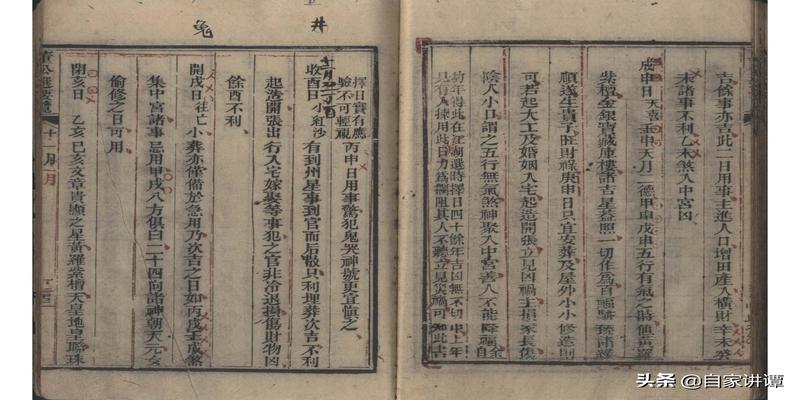 吉餘事亦吉此二日用事主進人口增田產入橫財辛未癸
未諸事不利乙未煞入中宮凶
成申日天喜壬申天月二德甲申戊申五行有氣之時値黃羅
紫檀金銀寶藏庫樓諸吉星益照一切作爲百福駢臻諸
順遂生貴子旺財祿庚申日只宜安葬及屋外小小修造則
可若起大工及婚姻入宅起造開張立見凶禍主損家長傷
陰人小口謂之五行無氣煞神聚入中宮善人不能降福
幼年得此在江湖選時擇日四十餘年吉凶無不切
只有人揀用此日力爲攔阻其人不聽立見災禍可知此書
擇日實有應
驗不可輕視
丙申日用事驚犯鬼哭神號更宜愼之
十一月 丁酉
收酉日小紅沙
有到州星事到官而后散只利埋葬次吉不利
起造開張出行入宅嫁娶等事犯之官非冷退損傷財物凶
餘酉不利
開戌日往亡小葬亦僅備於急用乃次吉之日如丙戌壬戌煞
集中宮諸事忌用甲戌八方俱白二十四向諸神朝天元亥
偷修之日可用
閉亥日乙亥己亥文章貴顯之星黃羅紫檀天皇地皇聯珠
董公選要覽
十一月
井
兔
头条 @自家讲谭